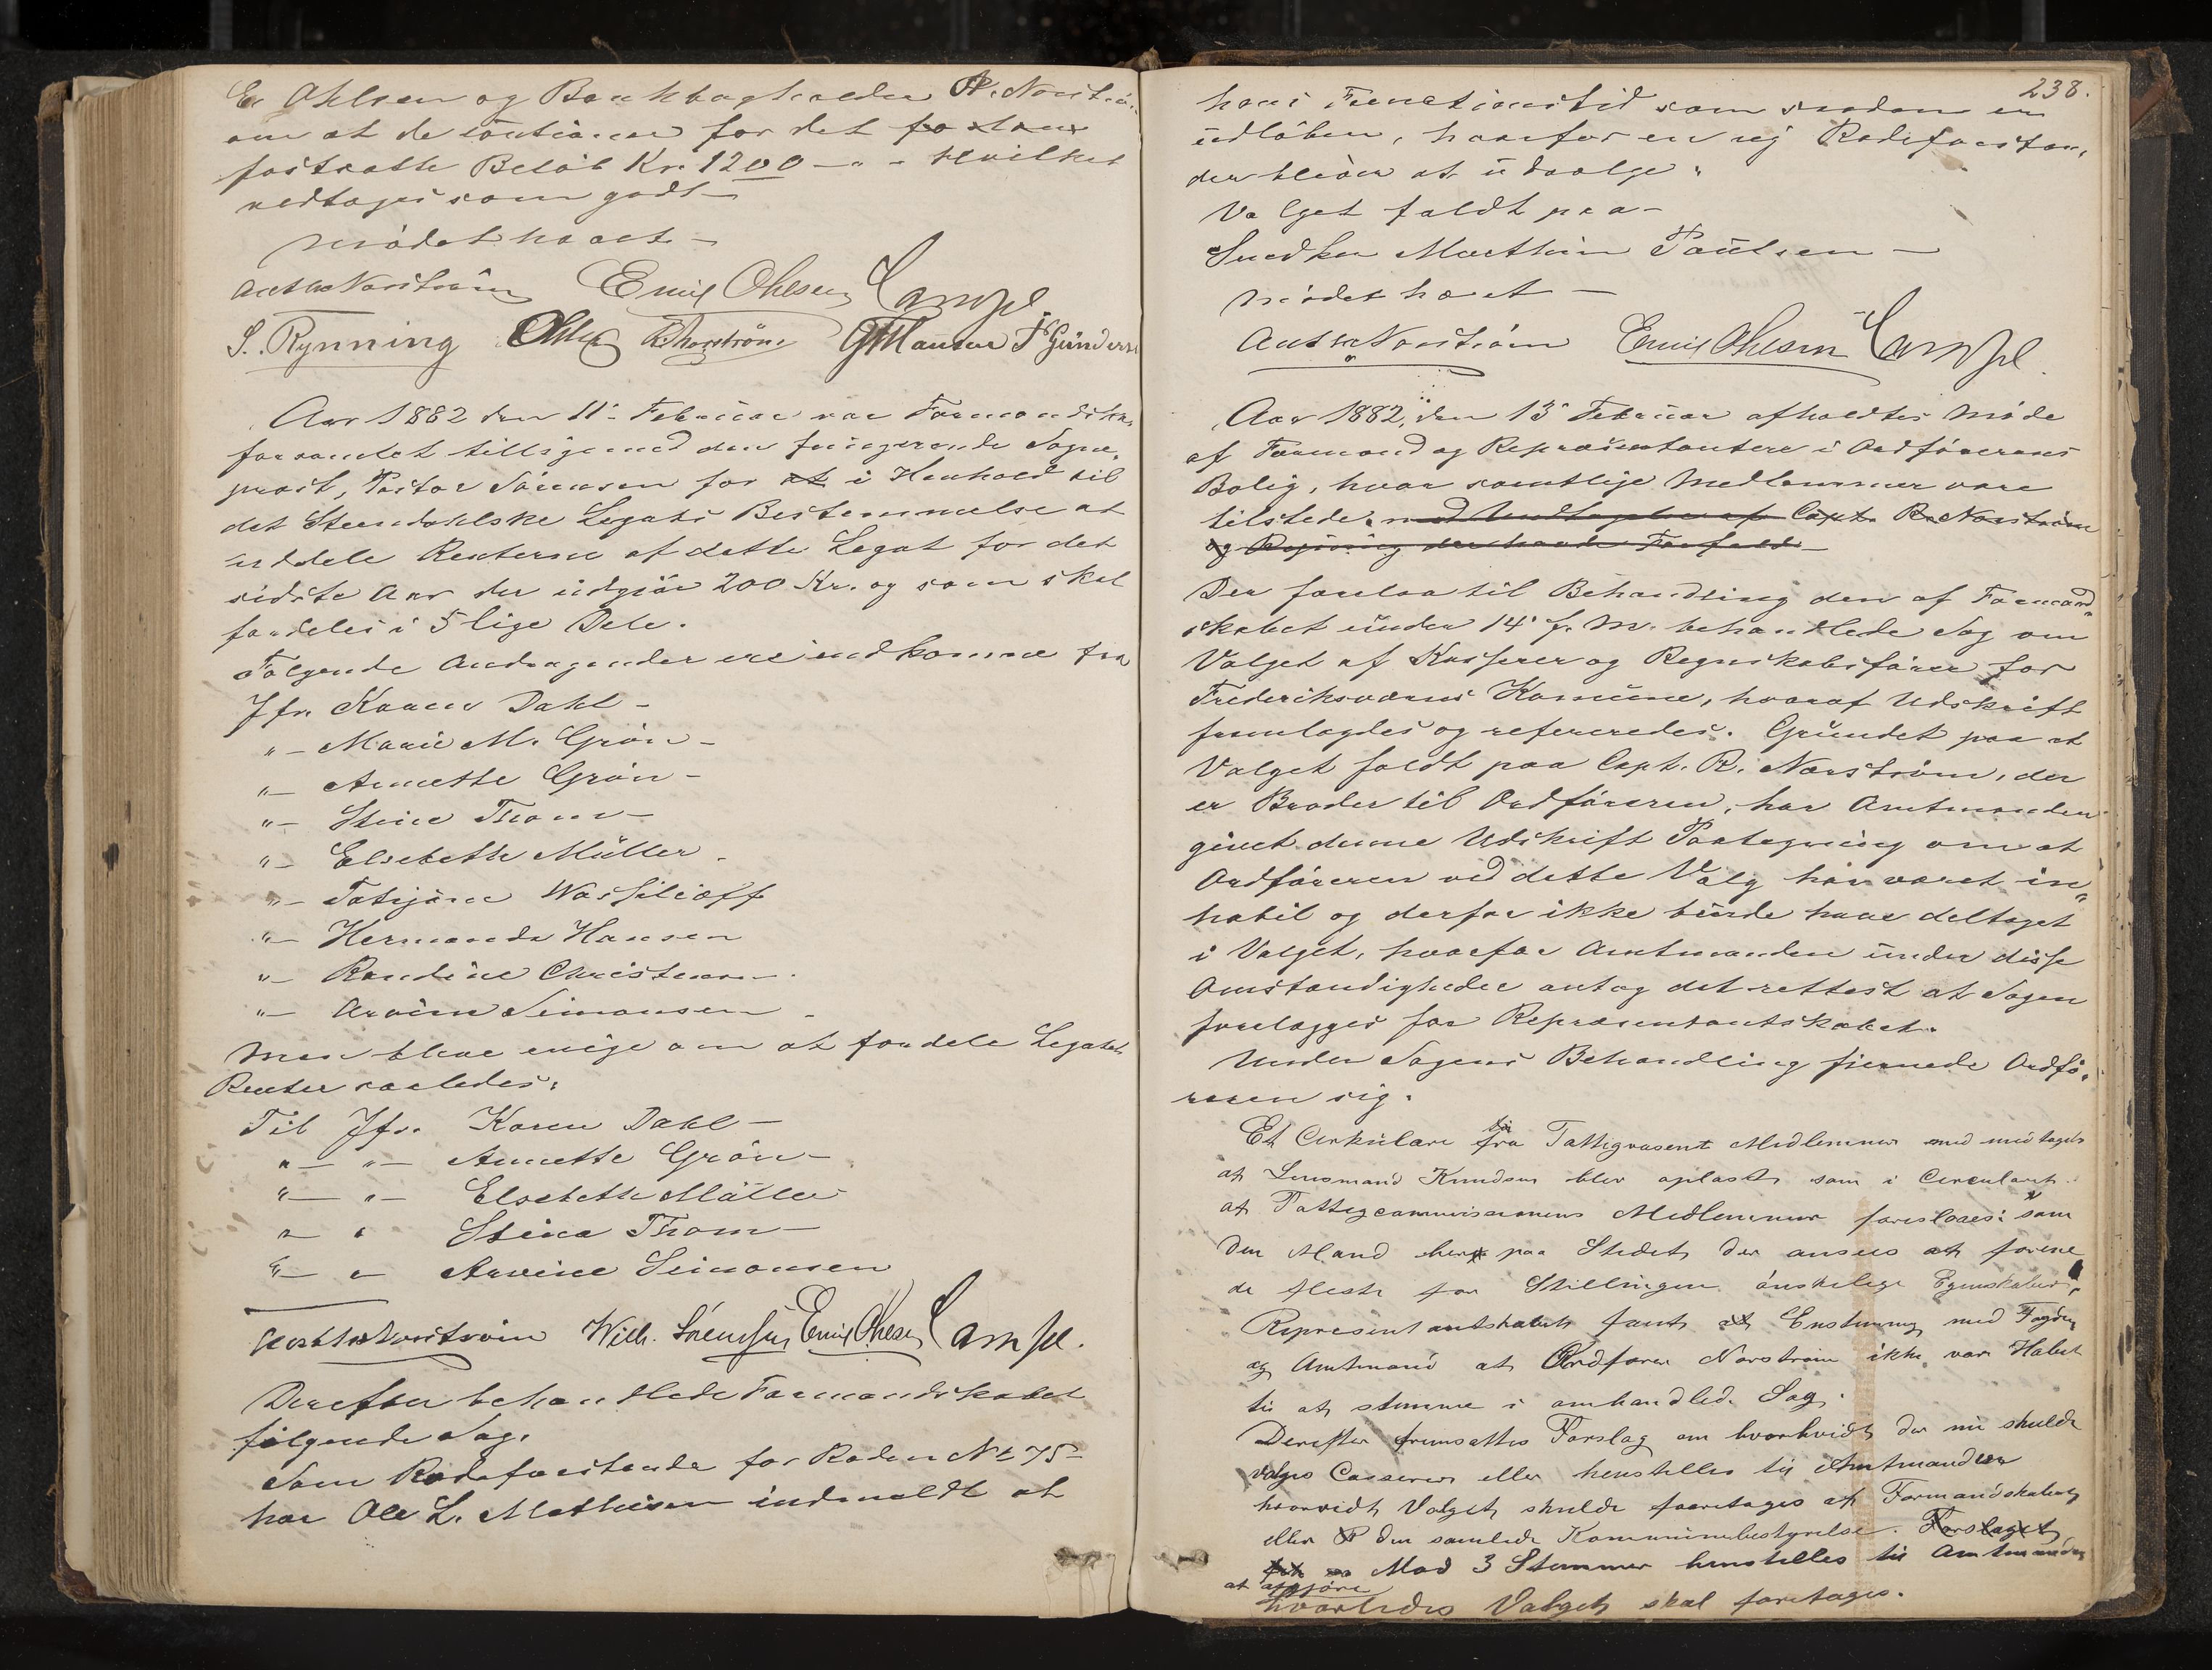 E. Ohlsen og Bankbogholder R. Norström
om at de cautionere for det
fastsatte Beløb Kr. 1200 – " – Hvilket
vedtoges som godt –
Mødet hævet –
Anth Norström Emil Ohlsen Lampe
S. Rynning Ohlsen R. Norström G. Hansen J. Gunders
Aar 1882 den 11te Februar var Formandska-
forsamlet tilligemed den fungerende Sogne-
prest, Pastor Sörensen for at i Henhold til
det Steendahlske Legats Bestemmelse at
uddele Renterne af dette Legat for det
sidste Aar der udgjör 200 Kr. og som skal
fordeles i 5 lige Dele.
Fölgende Andragender ere indkomne fra
Jfr. Karen Dahl –
"– Marie M. Grön –
"– Annette Grön –
"– Stine Thom –
"– Elsebeth Müller –
"– Tatjana Wassilioff
"– Hermanda Hansen
"– Randine Christensen –
"– Arvine Simonsen –
Man blev enige om at fordele Legatets
Renter saaledes:
Til Jfr. Karen Dahl –
"– "– Annette Grön –
"– "– Elsebeth Müller
" " Stina Thom –
"– " Arvine Simonsen
Anth Norström Wilh. Sörensen Emil Ohlsen Lampe.
Derefter behandlede Formandskabet
fölgende Sag.
Som Rodeforstander for Roden No 75
har Ole L. Mathisen indmeldt at
238.
hans Functionstid som saadan er
udlöben, hvorfor en ny Rodeforstan-
der bliver at udvælge.
Valget faldt paa –
Snedker Marthin Paulsen –
Mödet hævet –
Anth Norström Emil Ohlsen Lampe.
Aar 1882, den 13 Februar afholdtes Möde
af Formænd og Repræsentantere i Ordförerens
Bolig, hvor samtlige Medlemmer vare
tilstede. med Undtagelse af Capt. R. Norström
og Rynning der havde Forfald –
Der forelaa til Behandling den af Formand-
skabet under 14 f. M. behandlede Sag om
Valget af Kasserer og Regnskabsförer for
Frederiksværns Komune, hvoraf Udskrift
fremlagdes og refereredes. Grundet paa at
Valget faldt paa Capt. R. Norström, der
er Broder til Ordföreren, har Amtmanden
givet denne Udskrift Paategning om at
Ordföreren ved dette Valg har været in-
habil og derfor ikke burde have deltaget
i Valget, hvorfor Amtmanden under disse
Omstændigheder antog det rettest at Sagen
forelægges for Repræsentantskabet.
Under Sagens Behandling fjernede Ordfö-
reren sig.
Et Cirkulære fra Fattigvæsent Medlemmer med undtagelse
af Lensmand Knudsen blev oplæst, som i Circulæret
af Fattigcommissionens Medlemmer foreslaaes: som
den Mand her paa Stedet, der ansees at forene
de fleste for Stillingen önskelige Egenskaber,
Representantskabet fandt at Enstemmig med Fogden
og Amtmand at Ordförer Norström ikke var Habel
til at stemme i omhandlede Sag.
Derefter fremsattes Forslag om hvorhvidt der nu skulde
vælges Casserer eller henstilles til Amtmanden
hvorvidt Valget skulde foretages af Formandskabet
eller den samlede Kommunebestyrelse. Forslaget
Mod 3 Stemmer henstilles til Amtmanden
at afgjöre
hvorledes Valget skal foretages.